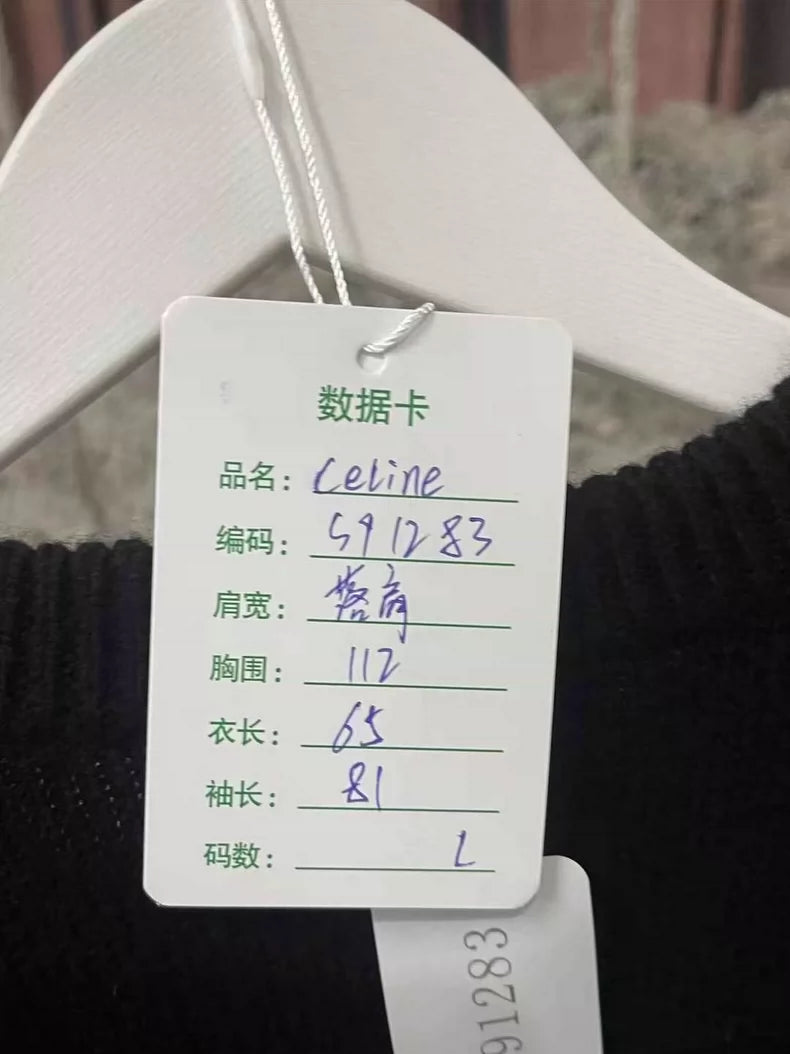 数据卡
品名：Celine
编码：591283
肩宽：落肩
胸围：112
衣长：65
袖长：81
码数：L
91283